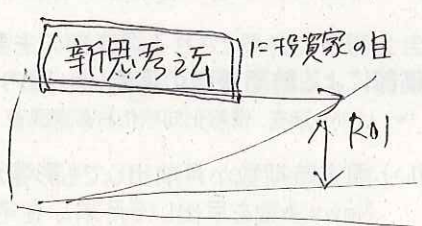 新思考法 に投資家の目
ROI